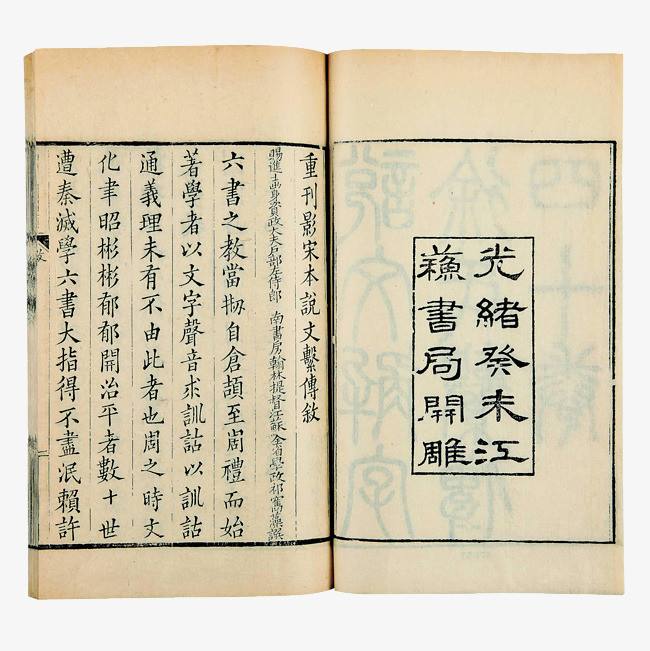 光緒癸未江
蘇書局開雕
重刊影宋本說文繫傳敘
賜進士出身資政大夫戶部左侍郎 南書房翰林提督江蘇全省學政祁寯藻譔
六書之教當刱自倉頡至周禮而始
著學者以文字聲音求訓詁以訓詁
通義理未有不由此者也周之時文
化聿昭彬彬郁郁開治平者數十世
遭秦滅學六書大指得不盡泯賴許